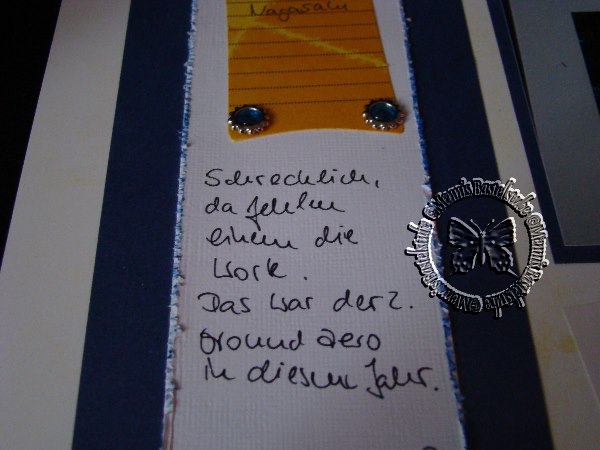 Nagasaki
Schrecklich,
da fehlen
einem die
Worte.
Das war der 2.
Ground Zero
in diesem Jahr.
©Mamis Bastelstube ©Mamis Bastelstube